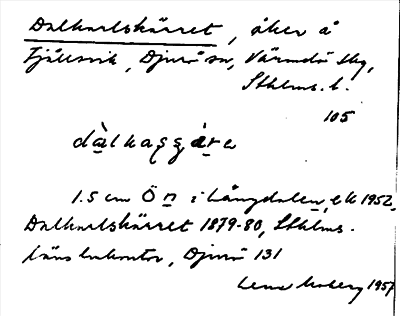 Dalkarlskärret, åker å
Fjällsvik, Djurö sn, Värmdö skg,
Sthlms. l.
105
dàlkaşşäre
1.5 cm Ö n i Långdalen, ek 1952,
Dalkarlskärret 1879-80, Sthlms.
läns lmkontor, Djurö 131
Lena Moberg 1957